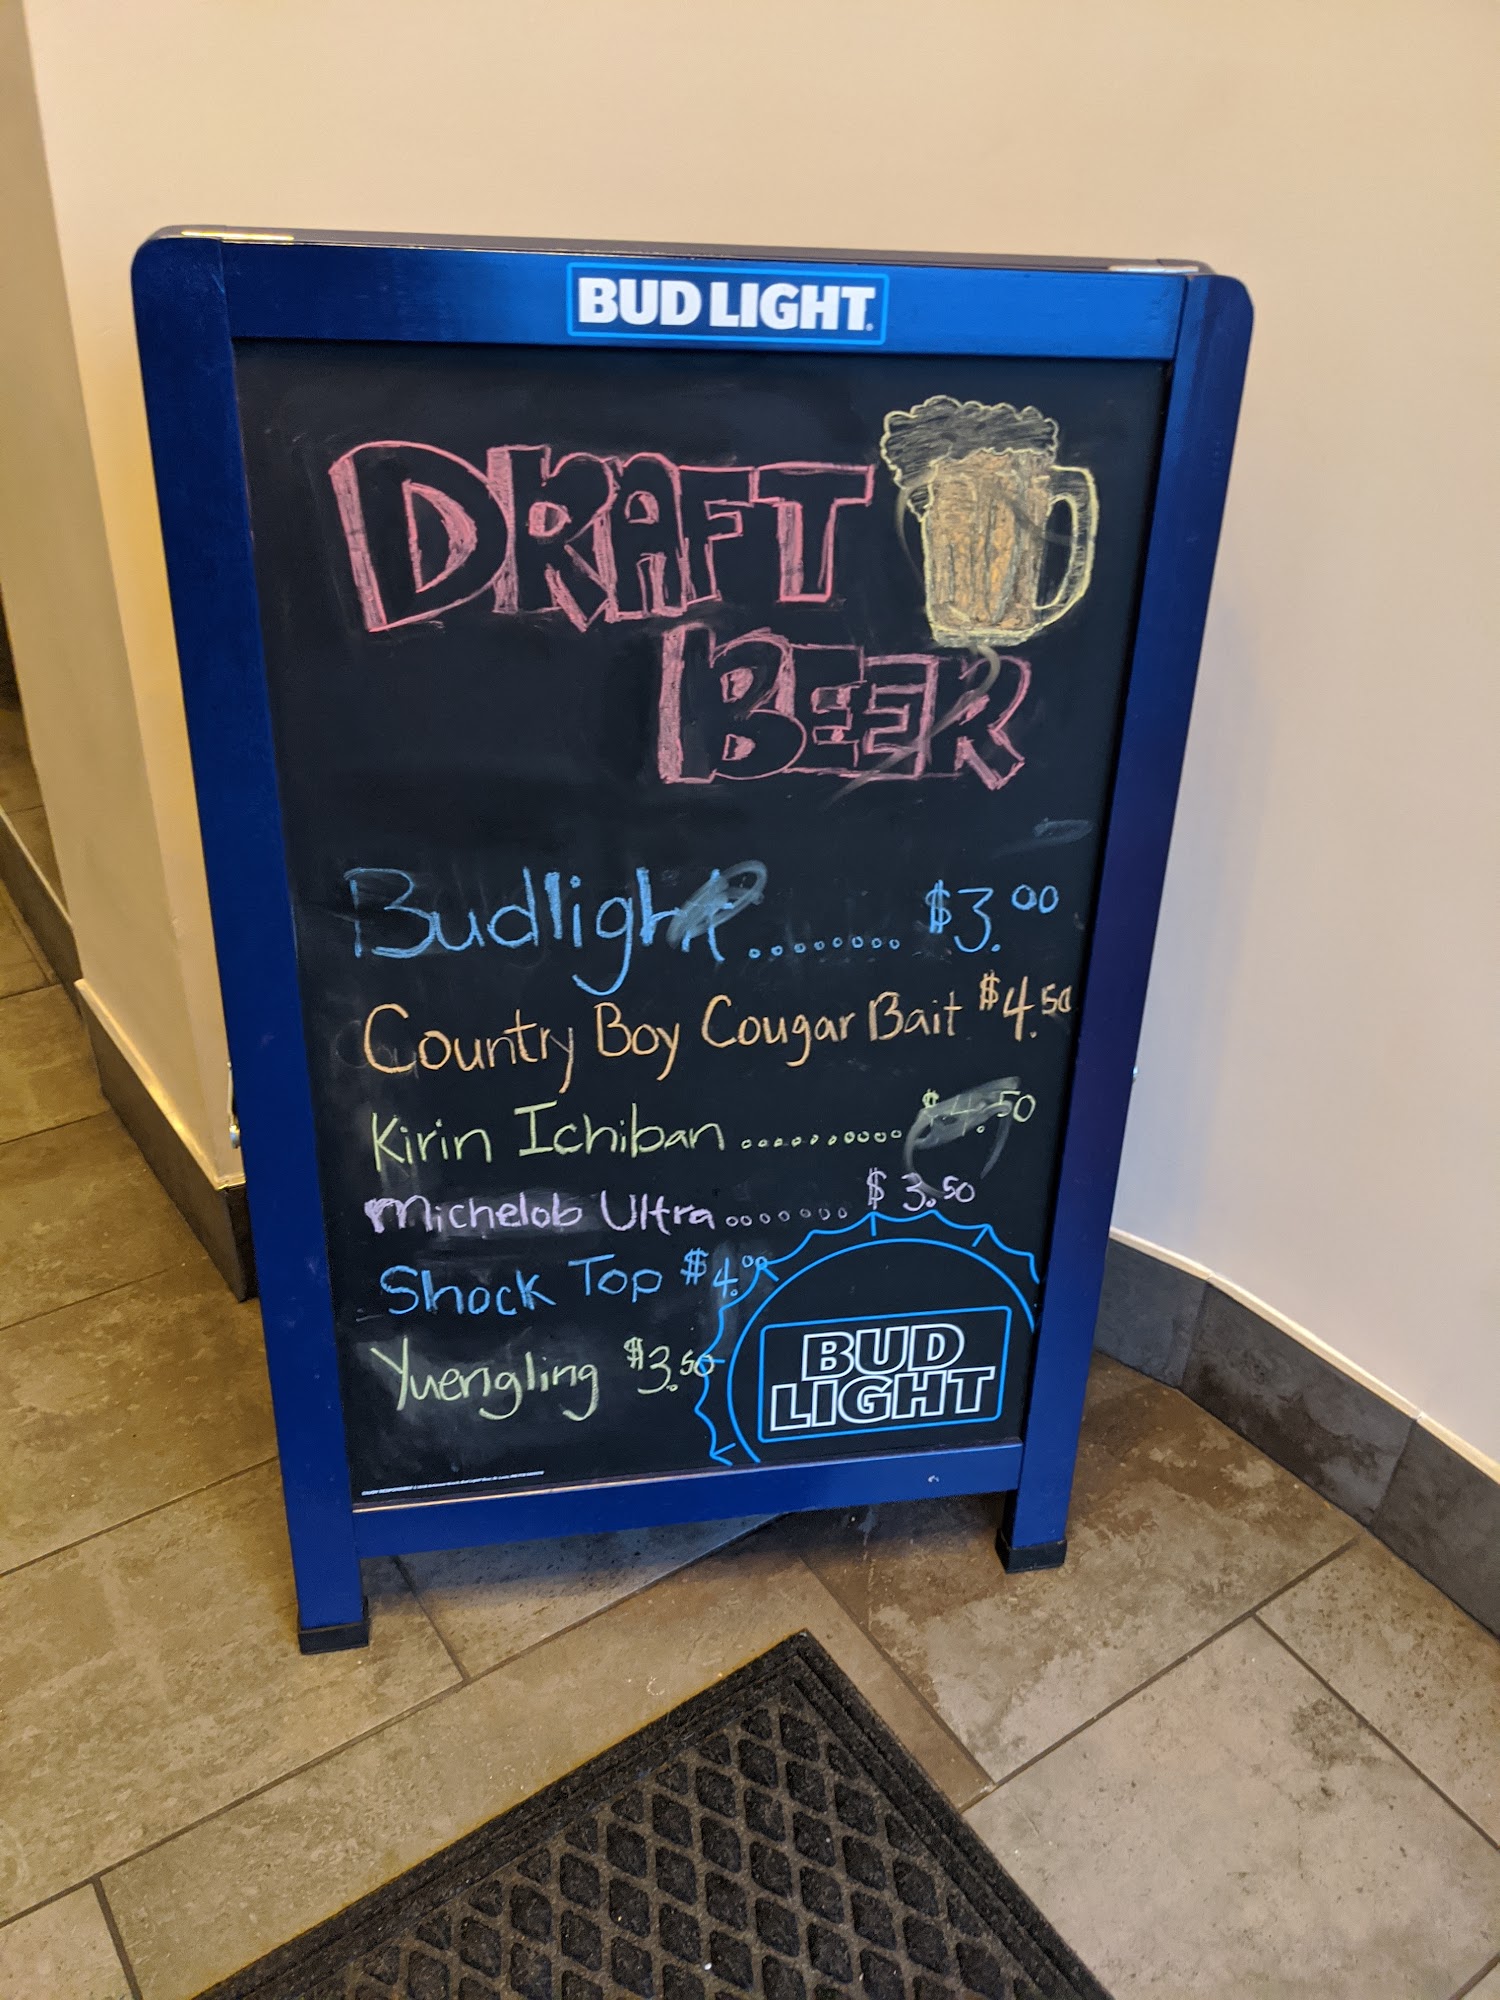 BUD LIGHT
DRAFT
BEER
Budlight ........ $3.00
Country Boy Cougar Bait $4.50
Kirin Ichiban .......... $4.50
Michelob Ultra ....... $3.50
Shock Top $4.00
Yuengling $3.50
BUD
LIGHT